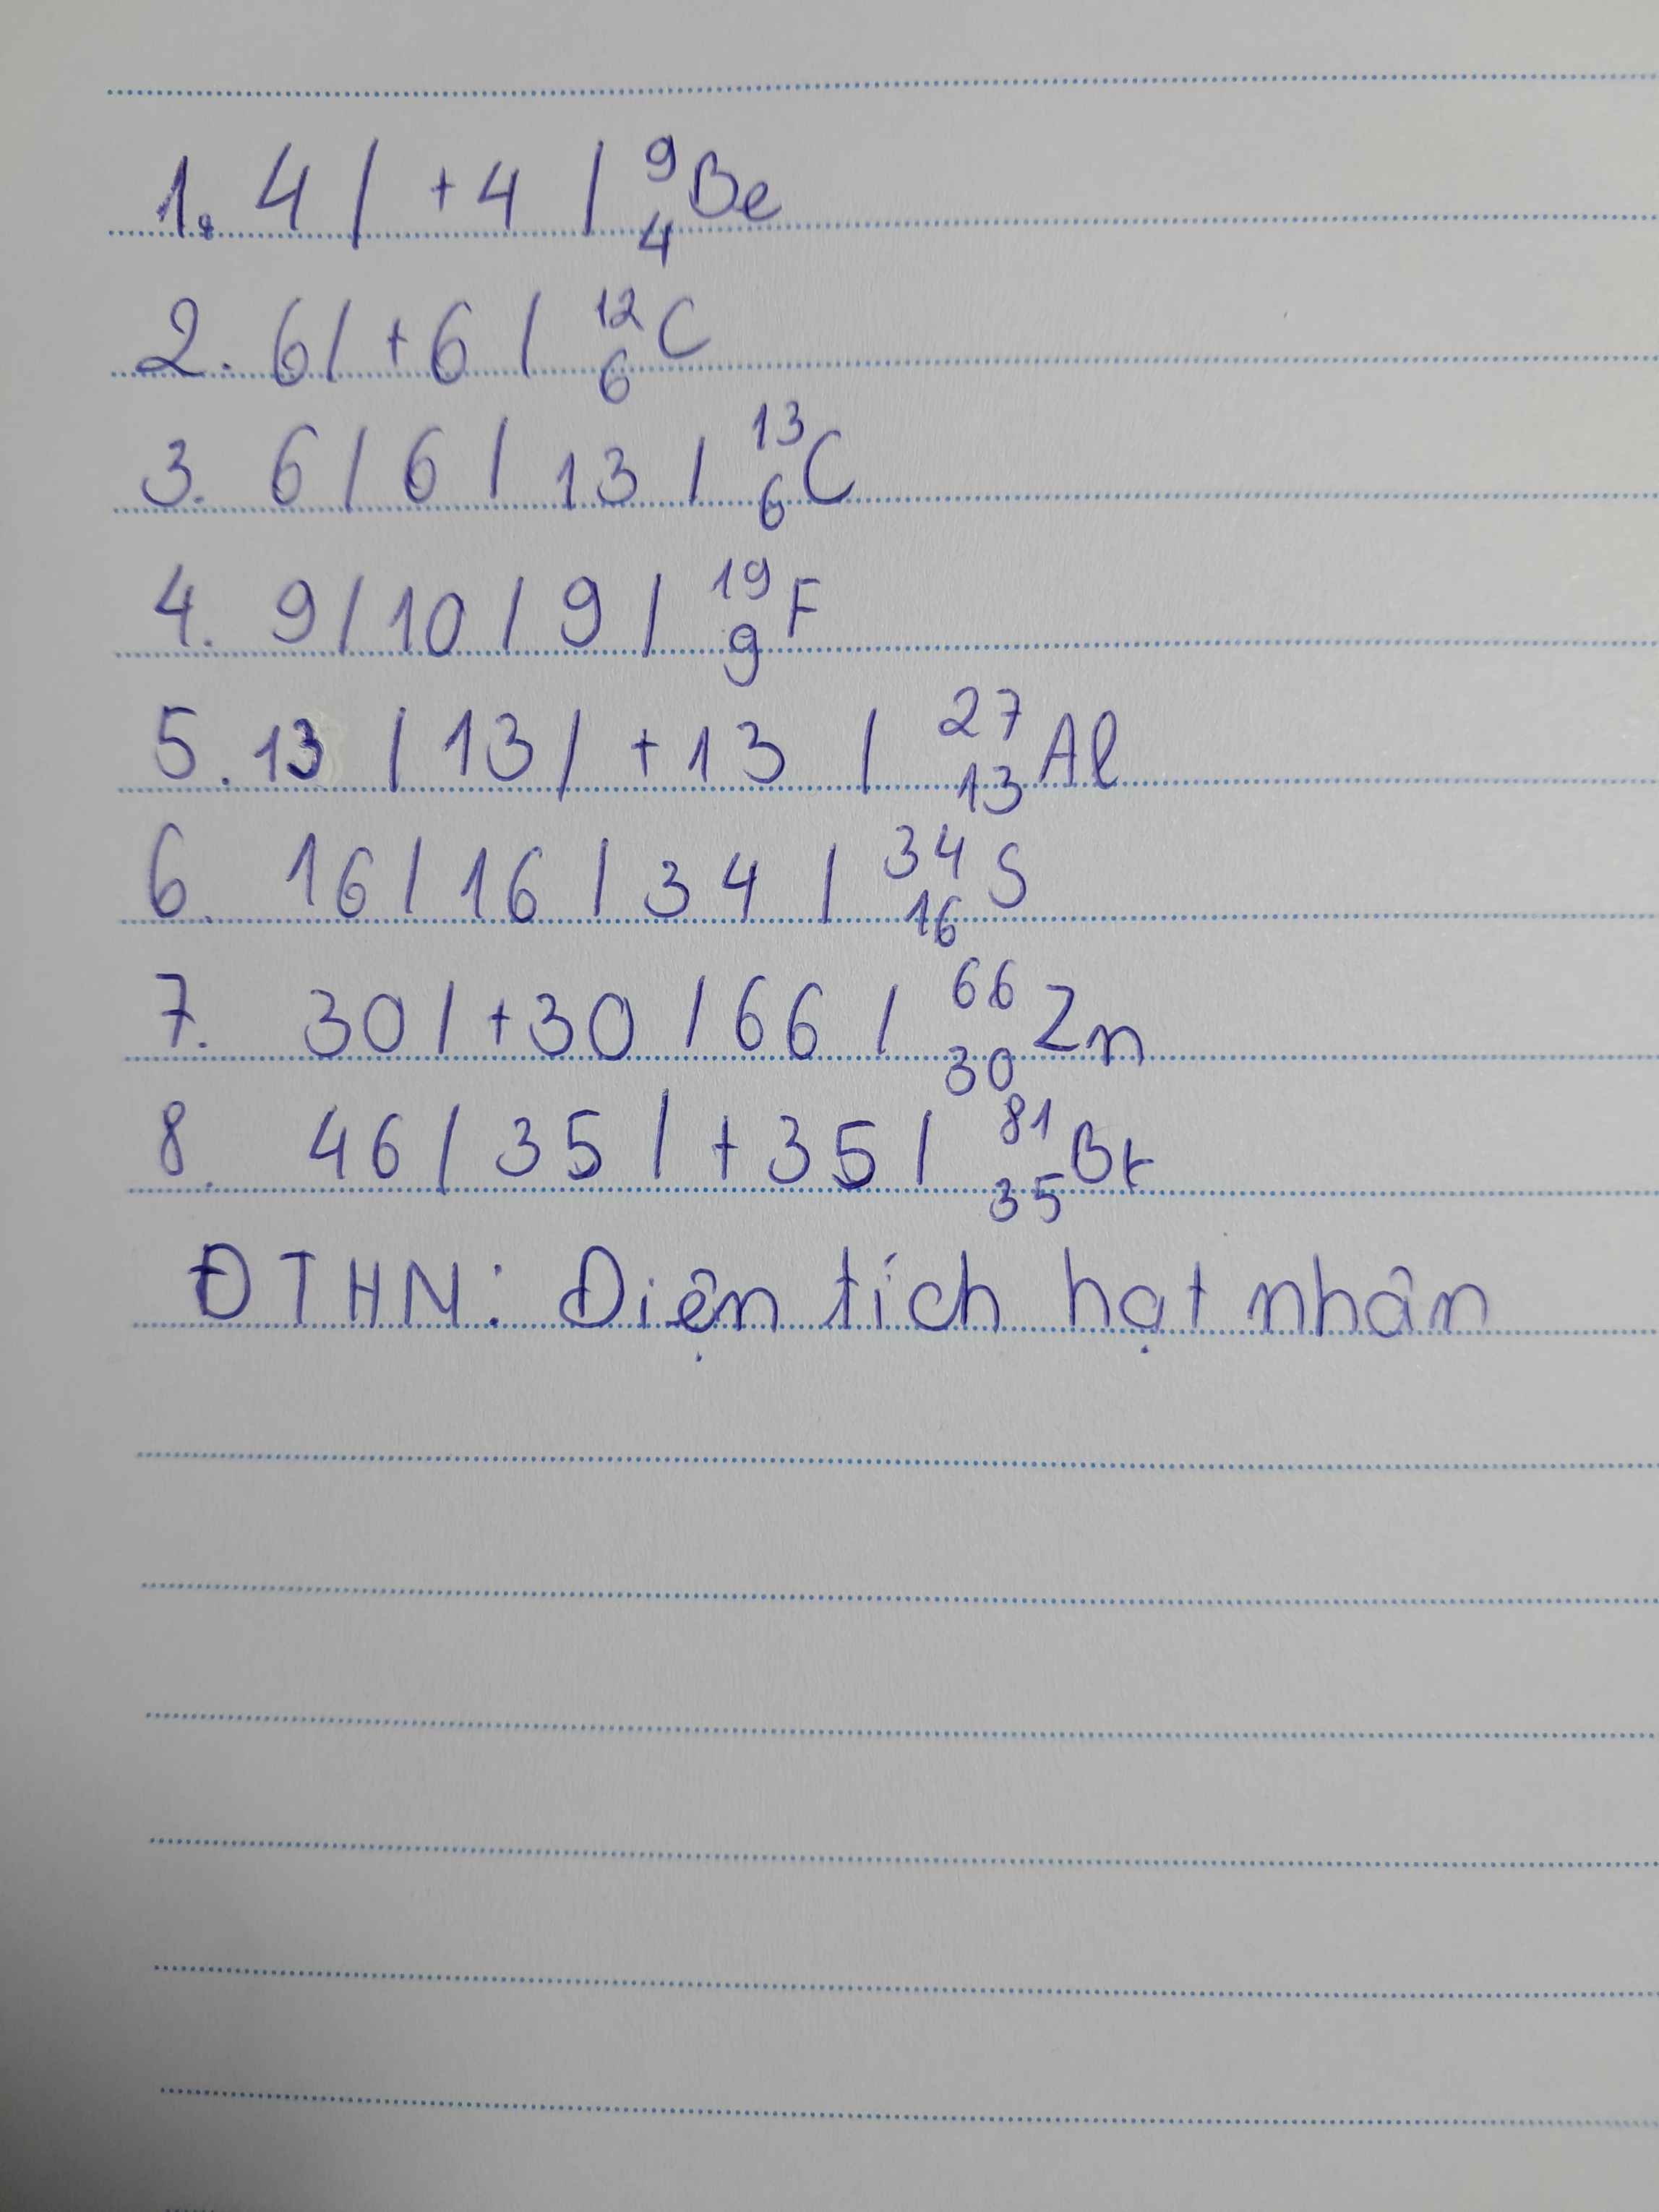 1. 4 / +4 / ⁹₄Be
2. 6 / +6 / ¹²₆C
3. 6 / 6 / 13 / ¹³₆C
4. 9 / 10 / 9 / ¹⁹₉F
5. 13 / 13 / +13 / ²⁷₁₃Al
6. 16 / 16 / 34 / ³⁴₁₆S
7. 30 / +30 / 66 / ⁶⁶₃₀Zn
8. 46 / 35 / +35 / ⁸¹₃₅Br
ĐTHN: Điện tích hạt nhân